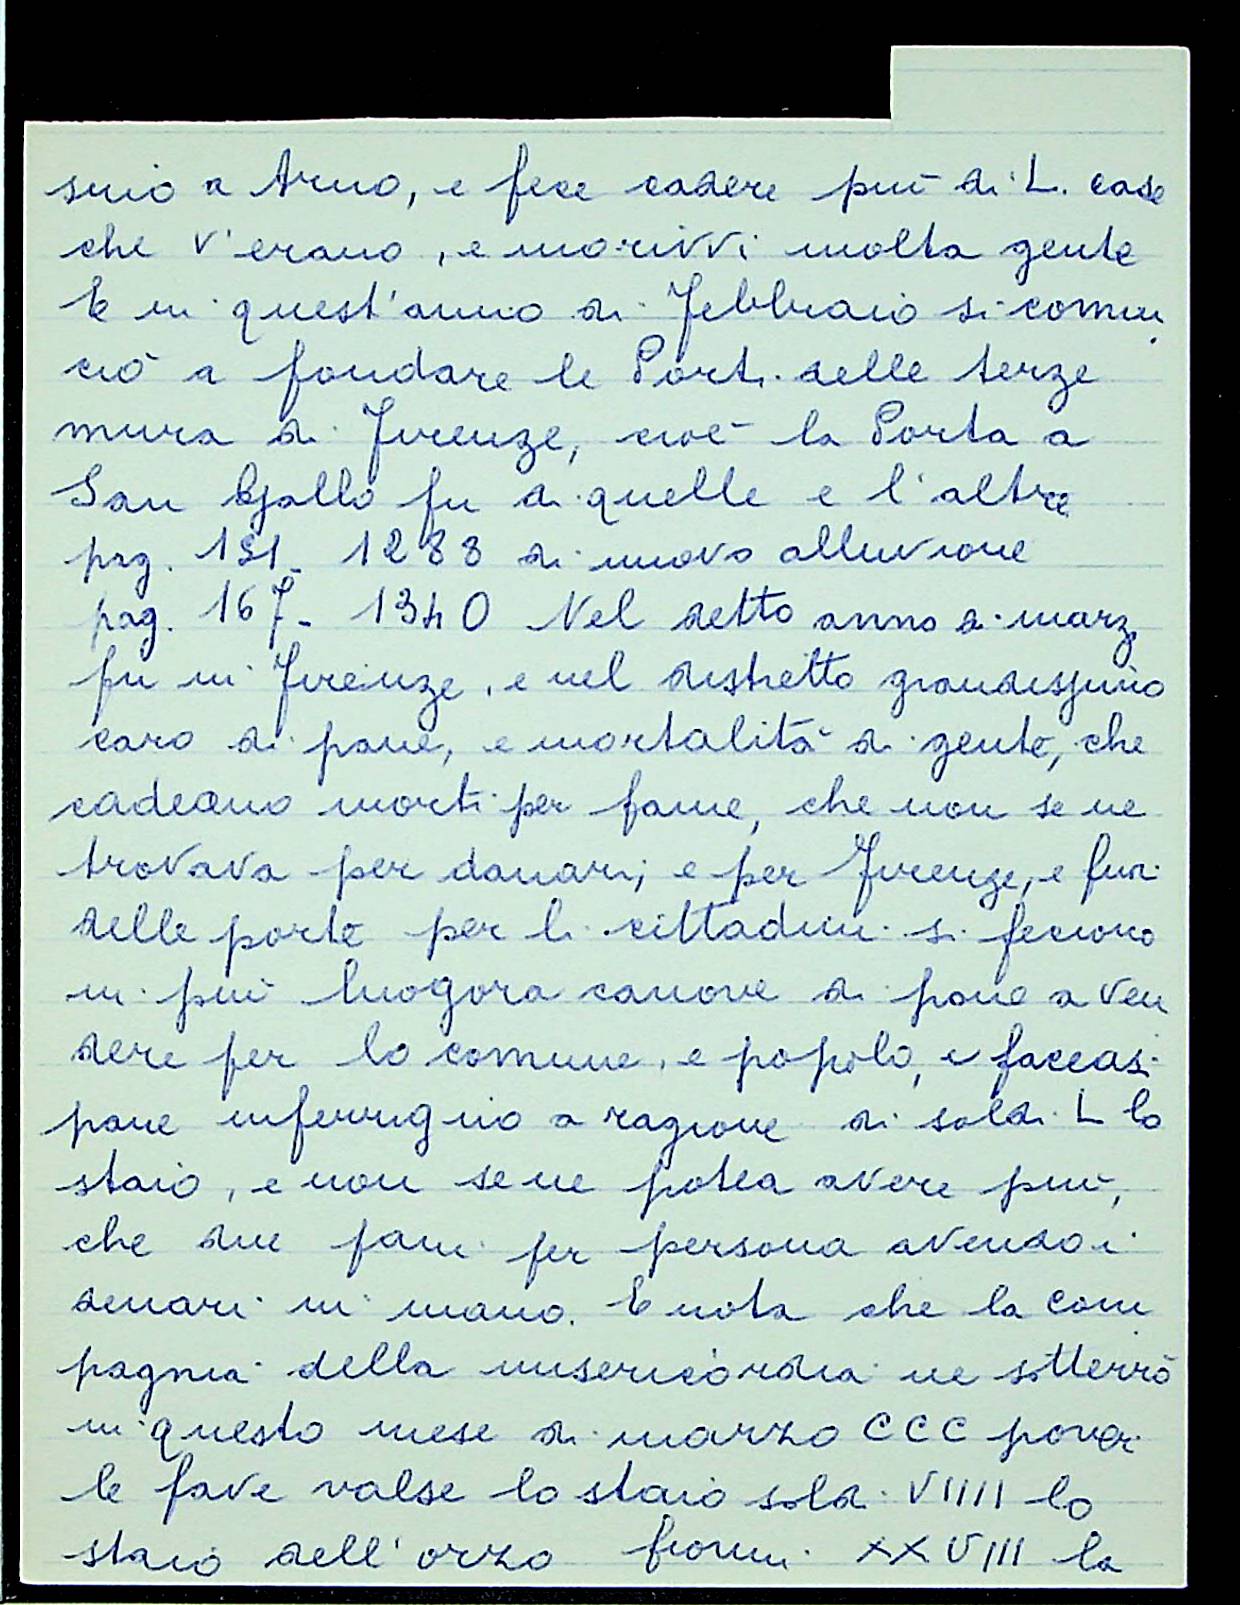 sino a Arno, e fece cadere più di L. case
che v'erano, e morivvi molta gente
E in quest'anno di Febbraio si comin
ciò a fondare le Porti delle terze
mura di Firenze, cioè la Porta a
San Gallo fu di quelle e l'altre
pag. 151_ 1288 di nuovo alluvione
pag. 167_ 1340 Nel detto anno di marz
fu in Firenze, e nel distretto grandissimo
caro di pane, e mortalità di gente, che
cadeano morti per fame, che non se ne
trovava per danari; e per Firenze, e furi
delle porte per li cittadini si feciono
in più luogora canove di pane a ven
dere per lo comune, e popolo, e faceasi
pane inferrigno a ragione di soldi L lo
staio, e non se ne potea avere più,
che due pani per persona avendo i
denari in mano. E nota che la com
pagnia della misericordia ne sotterrò
in questo mese di marzo CCC poveri
le fave valse lo staio sold. VIIII lo
staio dell'orzo fiorini XXVIII la